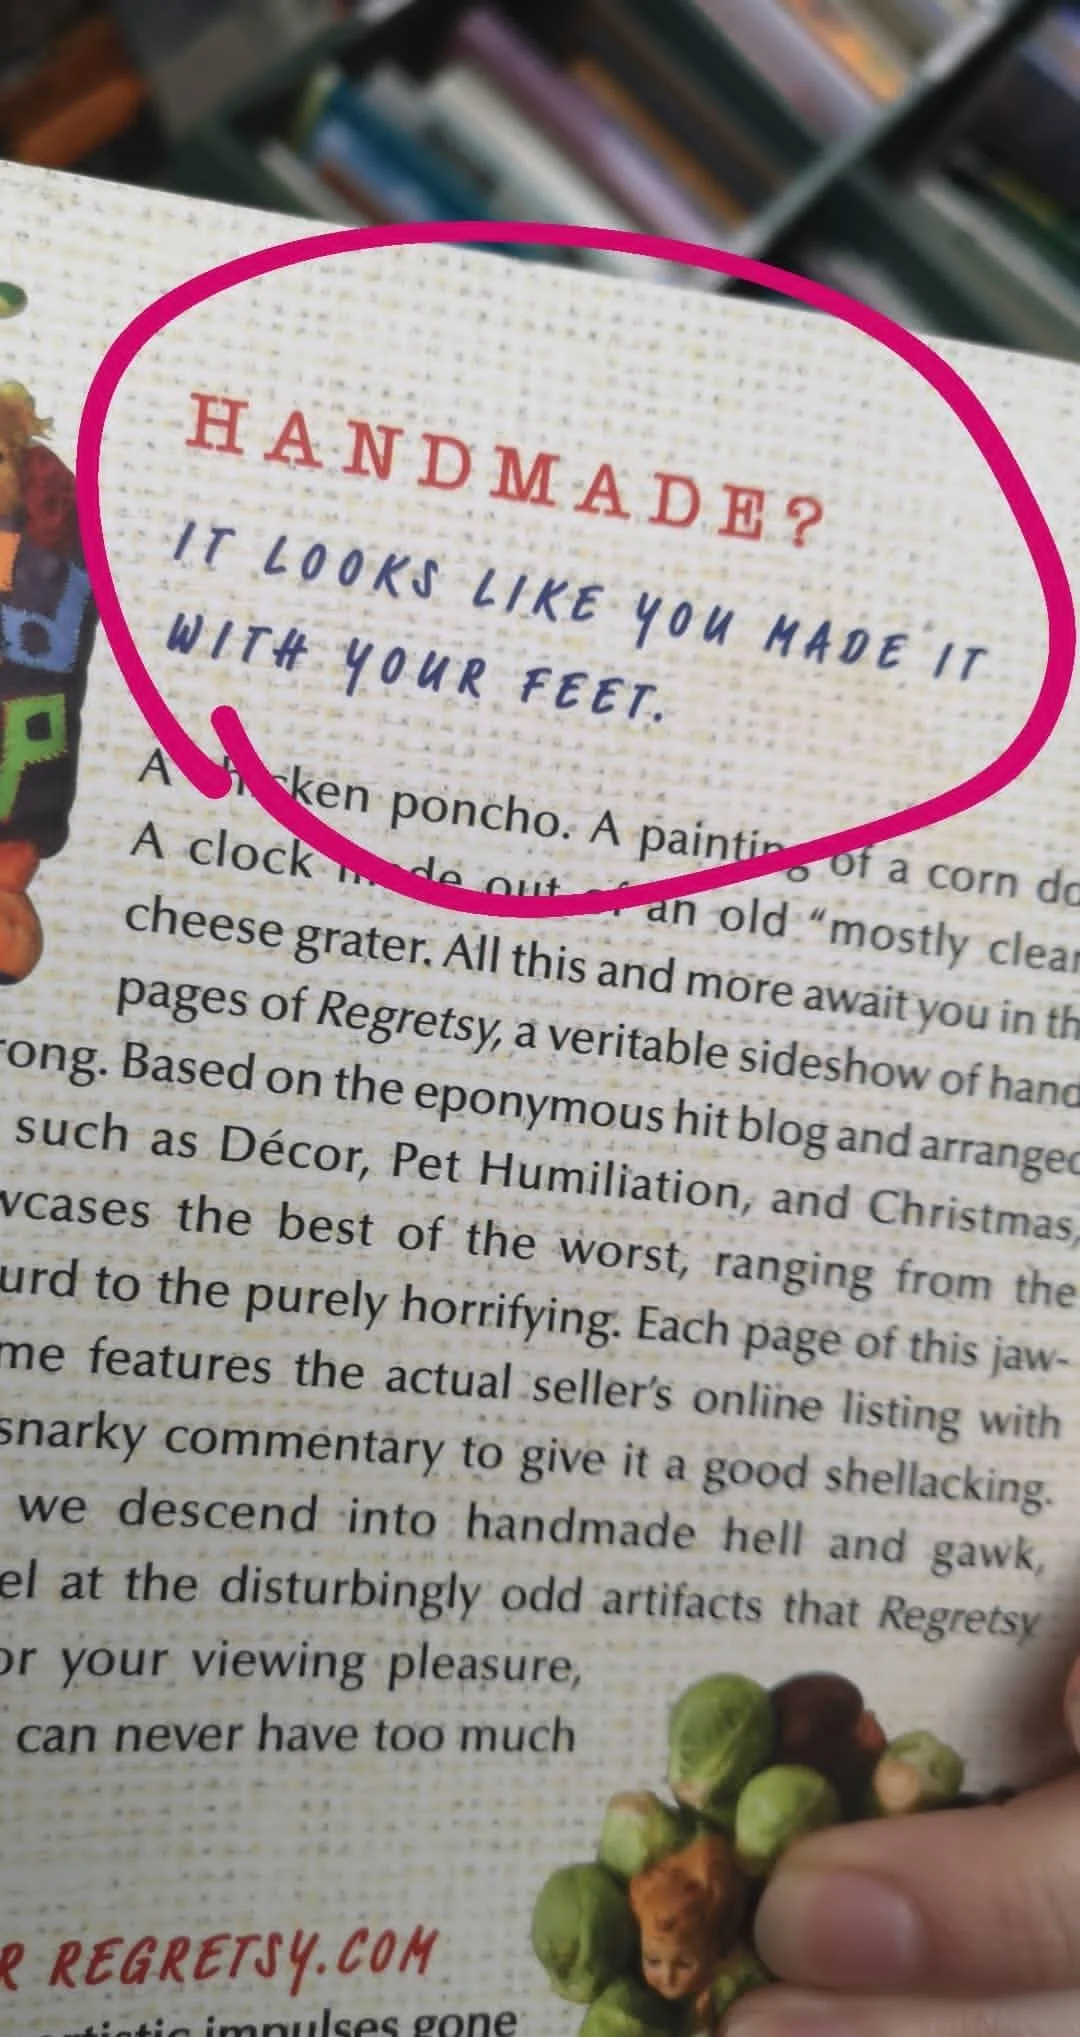 HANDMADE?
IT LOOKS LIKE YOU MADE IT
WITH YOUR FEET.
A chicken poncho. A painting of a corn do
A clock made out of an old “mostly clean
cheese grater. All this and more await you in th
pages of Regretsy, a veritable sideshow of hand
rong. Based on the eponymous hit blog and arranged
such as Décor, Pet Humiliation, and Christmas,
wcases the best of the worst, ranging from the
urd to the purely horrifying. Each page of this jaw-
me features the actual seller’s online listing with
snarky commentary to give it a good shellacking.
we descend into handmade hell and gawk,
el at the disturbingly odd artifacts that Regretsy
or your viewing pleasure,
can never have too much
R REGRETSY.COM
artistic impulses gone